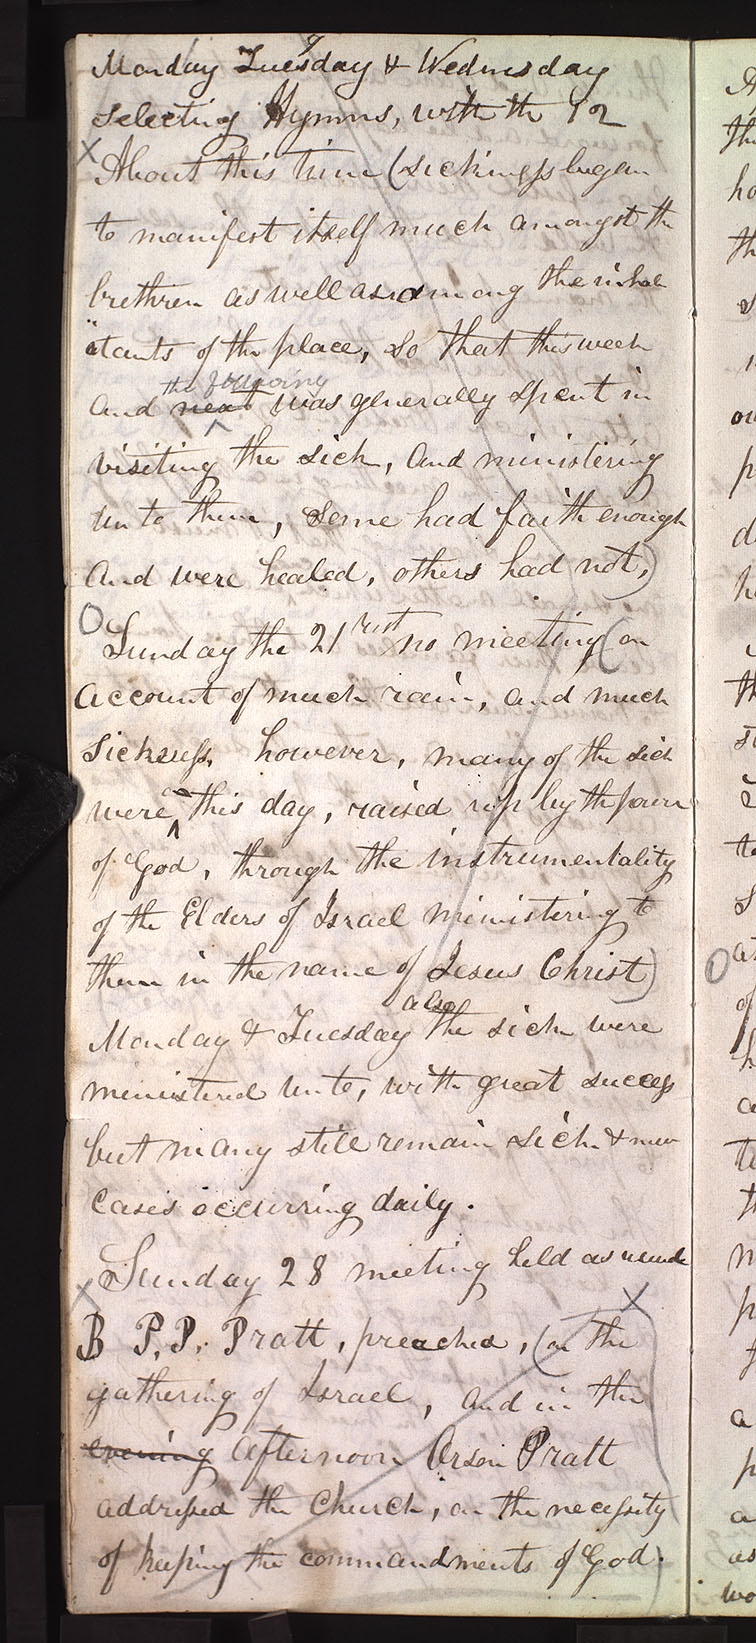 Monday Tuesday & Wednesday
Selecting Hymns, with the 12
X About this time (sickness began
to manifest itself much amongst the
brethren as well as among the inhabi
"tants of the place, So that this week
the following
and next was generally spent in
visiting the sick, and ministering
unto them, Some had faith enough
And were healed, others had not,)
O Sunday the 21rst no meeting (on
account of much rain, and much
Sickness, however, many of the sick
were this day, raised up by the power
of God, through the instrumentality
of the Elders of Israel ministering to
them in the name of Jesus Christ)
also
Monday & Tuesday the sick were
ministered unto, with great success
but many still remain sick & new
Cases occurring daily.
Sunday 28 meeting held as usual
X X
B P. P. Pratt, preached, (on the
gathering of Israel, and in the
evening afternoon Orson Pratt
addressed the Church, on the necessity
of keeping the commandments of God.)